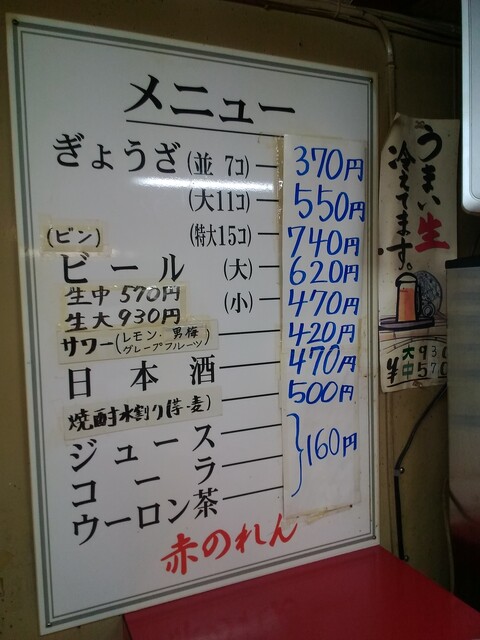 メニュー
ぎょうざ(並 7コ) 370円
(大11コ) 550円
(特大15コ) 740円
(ビン)
ビール (大) 620円
(小) 470円
生中 570円
生大 930円
サワー(レモン、男梅 グレープフルーツ) 420円
日本酒 470円
焼酎水割り(芋・麦) 500円
ジュース
コーラ
ウーロン茶
160円
赤のれん
うまい生
冷えてます。
¥
大930
中570